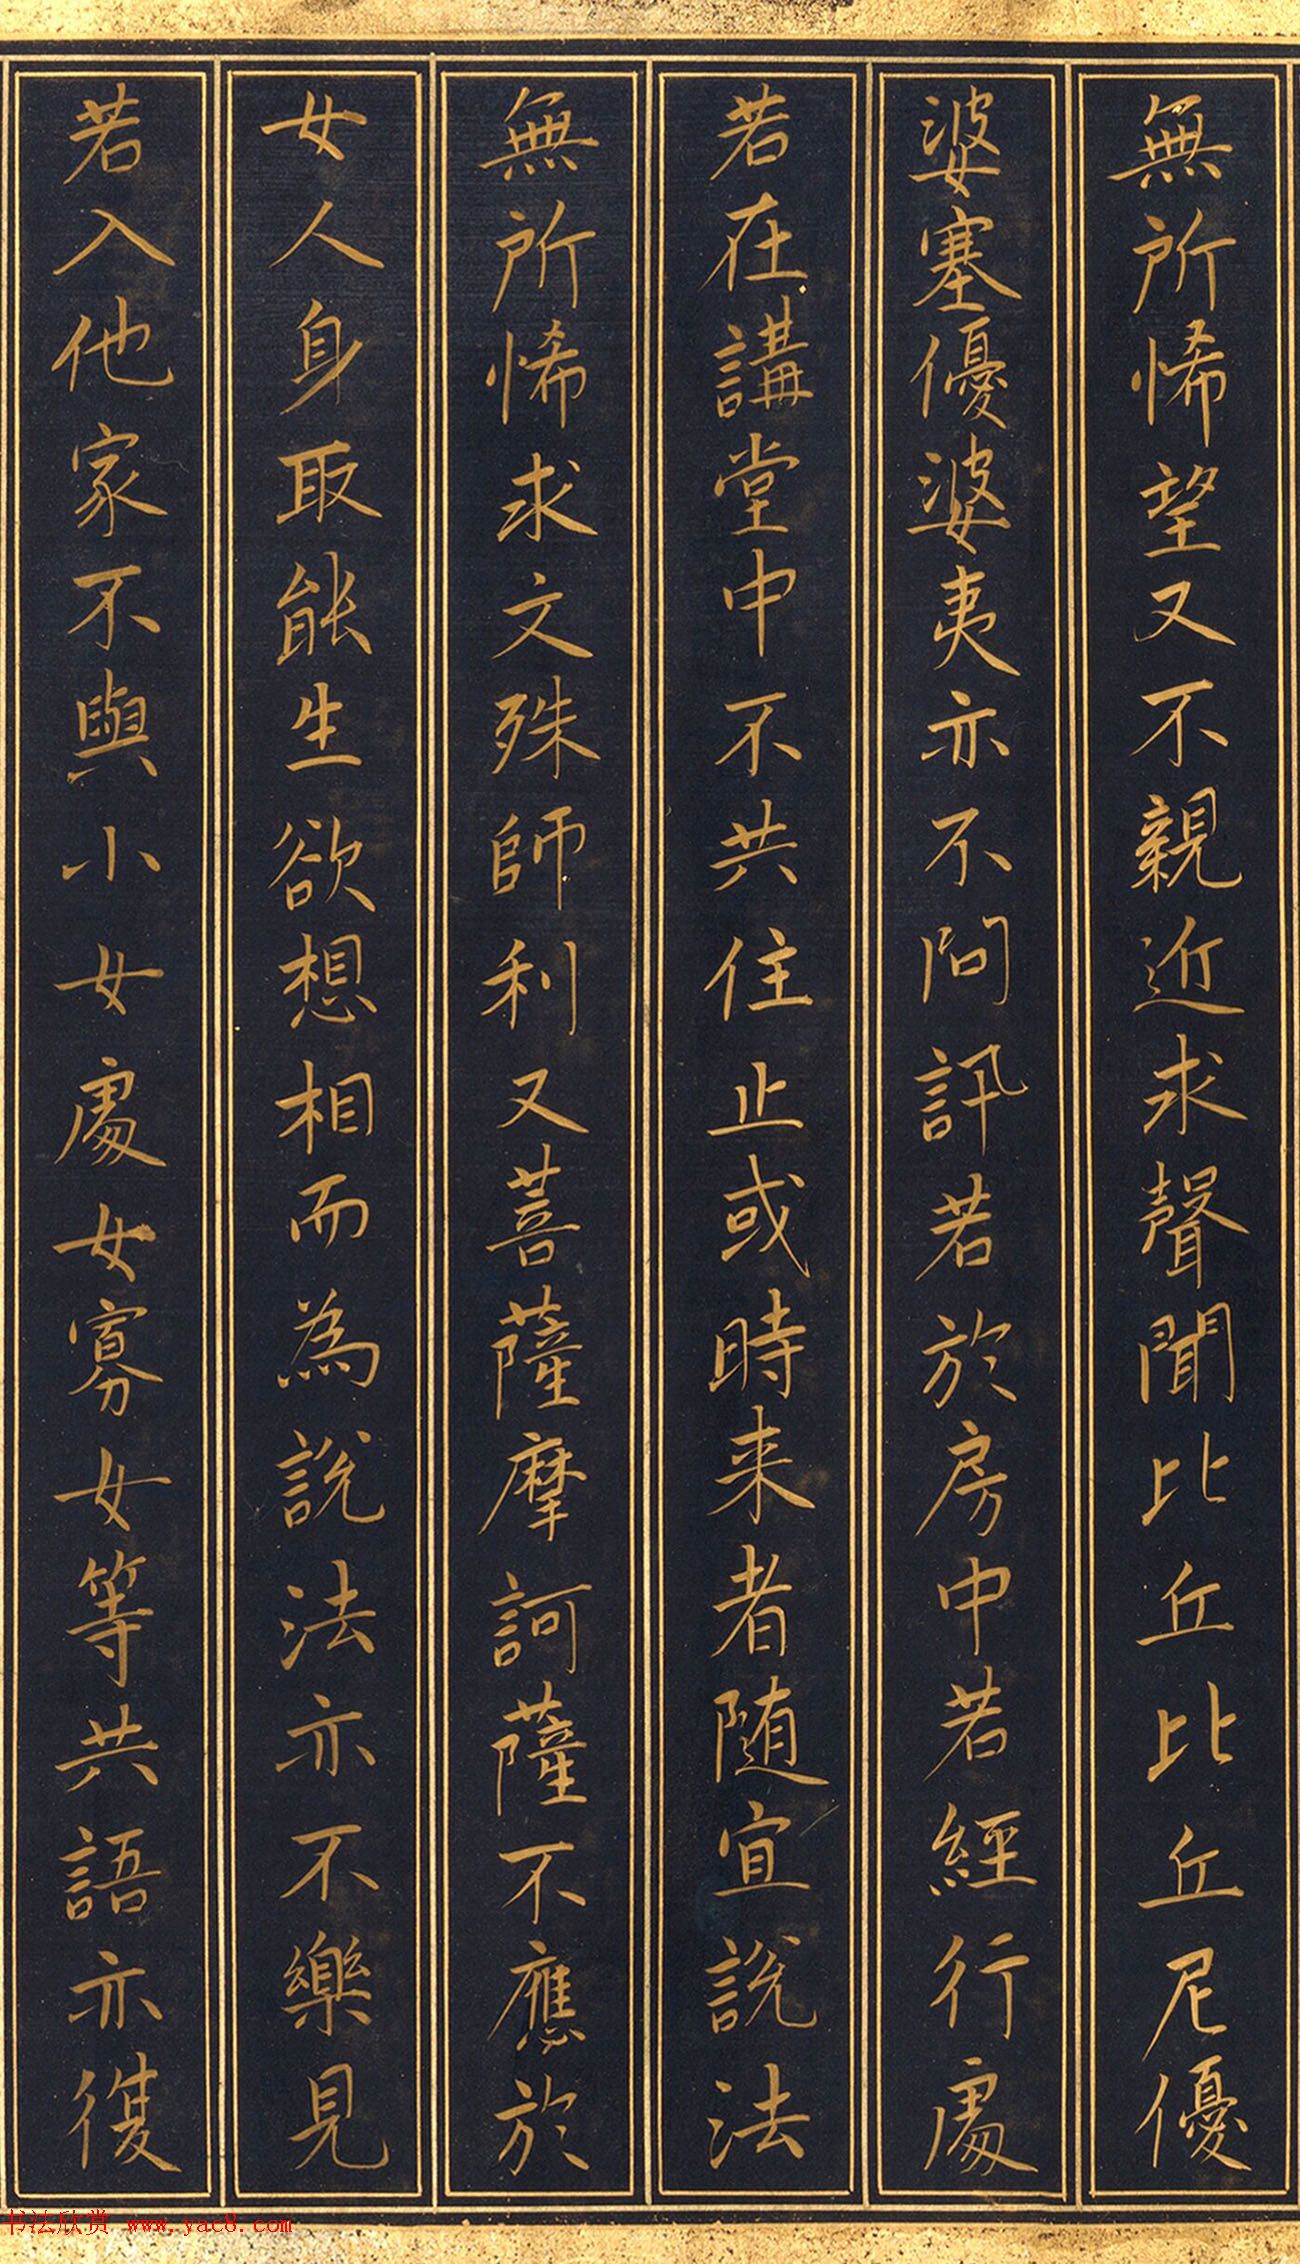 無所悕望又不親近求聲聞比丘比丘尼優
婆塞優婆夷亦不問訊若於房中若經行處
若在講堂中不共住止或時来者随宜說法
無所悕求文殊師利又菩薩摩訶薩不應於
女人身取能生欲想相而為說法亦不樂見
若入他家不與小女處女寡女等共語亦復
书法欣赏 www.yac8.com